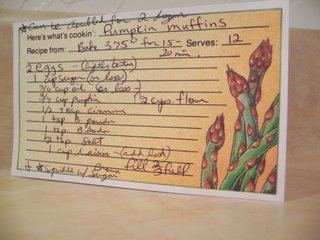 * Can be doubled for 2 dozen
Here's what's cookin': Pumpkin Muffins
Recipe from: Bake 375° for 15- Serves: 12
20 min.
2 eggs - (lightly beaten)
1 cup sugar (or less)
3/4 cup oil (or less)
3/4 cup pumpkin 2 cups. flour
1 1/2 tsp cinnamon
1 tsp B powder
1 tsp. B Soda
1/2 tsp salt
1 cup raisins - (add last)
* Sprinkle w/ Brown Sugar fill 2/3 full